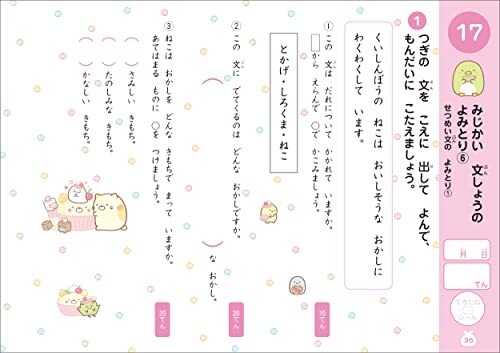 17
みじかい 文しょうの
ぶん
よみとり⑥
せつめい文の よみとり①
ぶん
月 日
てん
できたね
シール
35
1
つぎの 文を こえに 出して よんで、
ぶん
だ
もんだいに こたえましょう。
くいしんぼうの ねこは おいしそうな おかしに
わくわくして います。
① この 文は だれについて かかれて いますか。
ぶん
から えらんで ○で かこみましょう。
10てん
とかげ・しろくま・ねこ
② この 文に でてくるのは どんな おかしですか。
ぶん
20てん
( ) な おかし。
20てん
③ ねこは おかしを どんな きもちで まって いますか。
あてはまる ものに ○を つけましょう。
20てん
( ) さみしい きもち。
( ) たのしみな きもち。
( ) かなしい きもち。